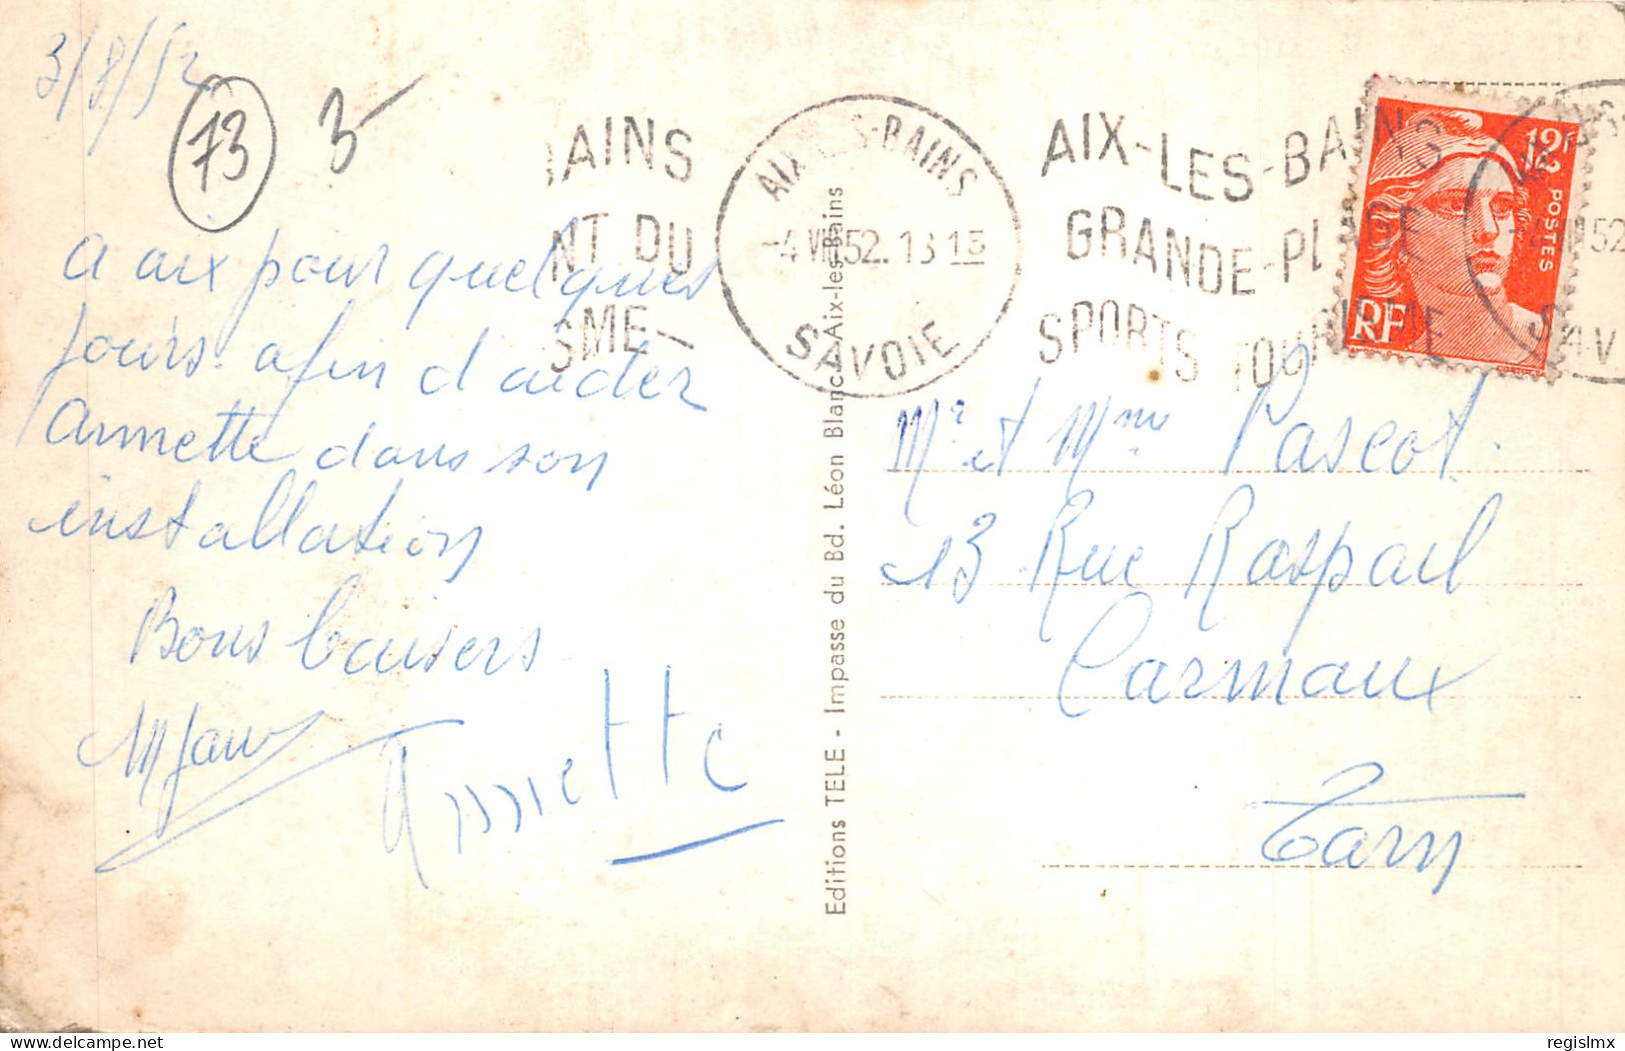 3/8/52
73
3-
AINS
NT DU
SME-
AIX-LES-BAINS
-4 VIII 52. 18 15
SAVOIE
AIX-LES-BAINS
GRANDE-PLAGE
SPORTS TOURISME
12F
POSTES
RF
52
SAV
a aix pour quelques
jours afin d'aider
Annette dans son
installation
Bons baisers
Annette
Editions TELE - Impasse du Bd. Léon Blanc-Aix-les-Bains
Mr et Mme Pascot.
13 Rue Raspail
Carmaux
Tarn
delcampe.net
regislmx